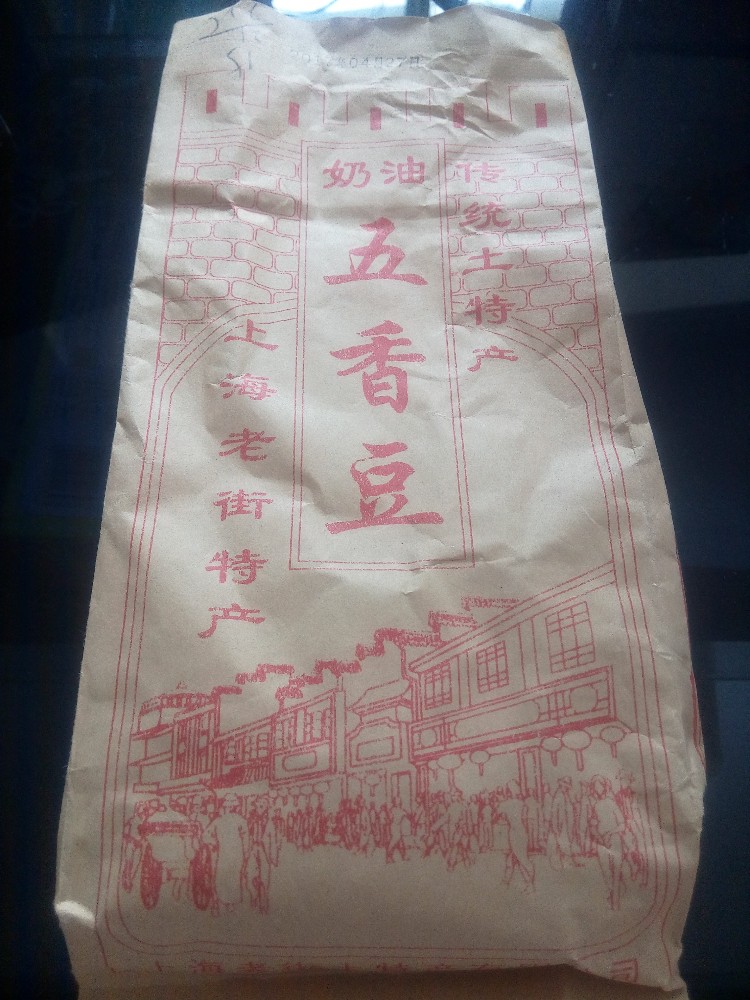 奶油
五香豆
传统土特产
上海老街特产